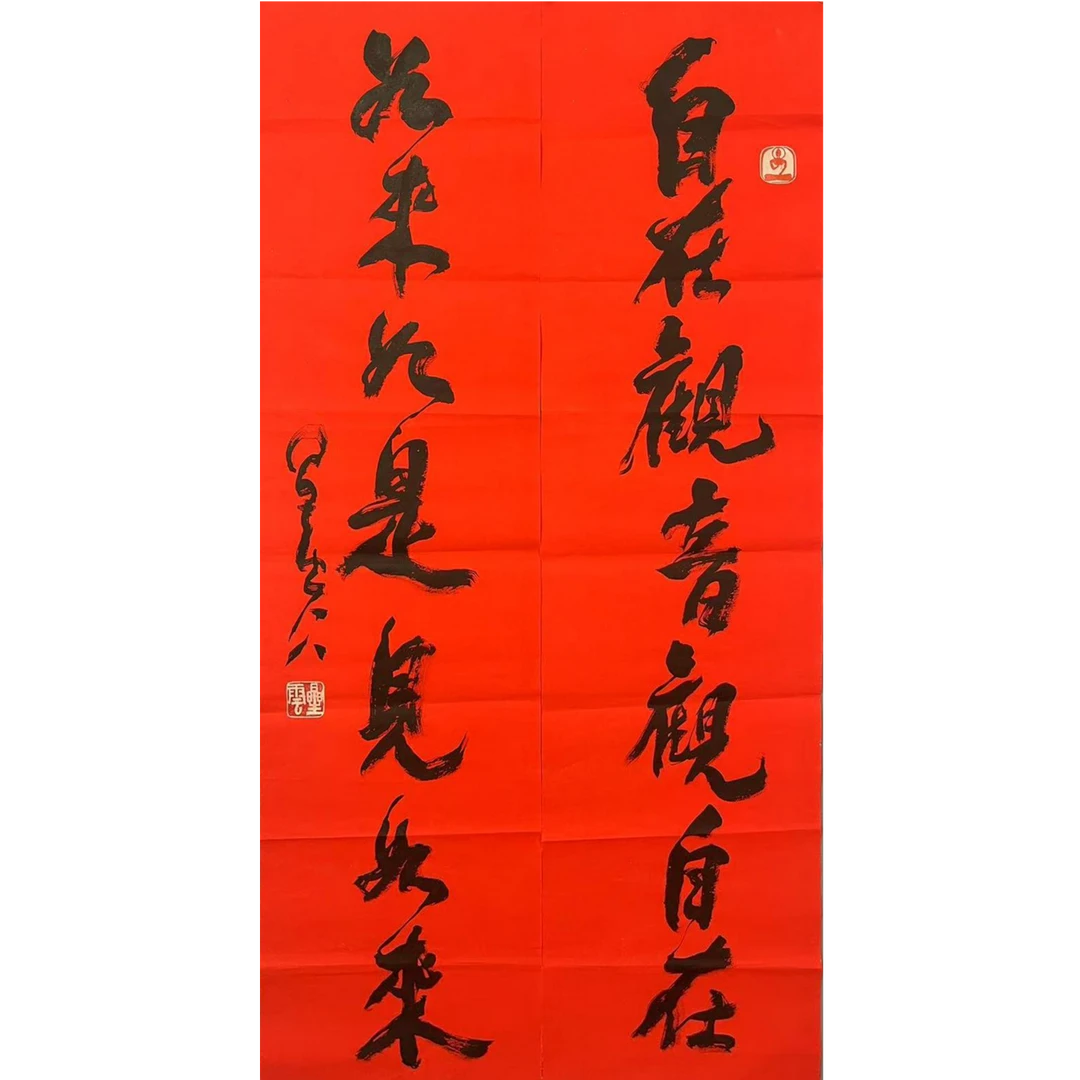 自在觀音觀自在
如來如是見如來
星雲